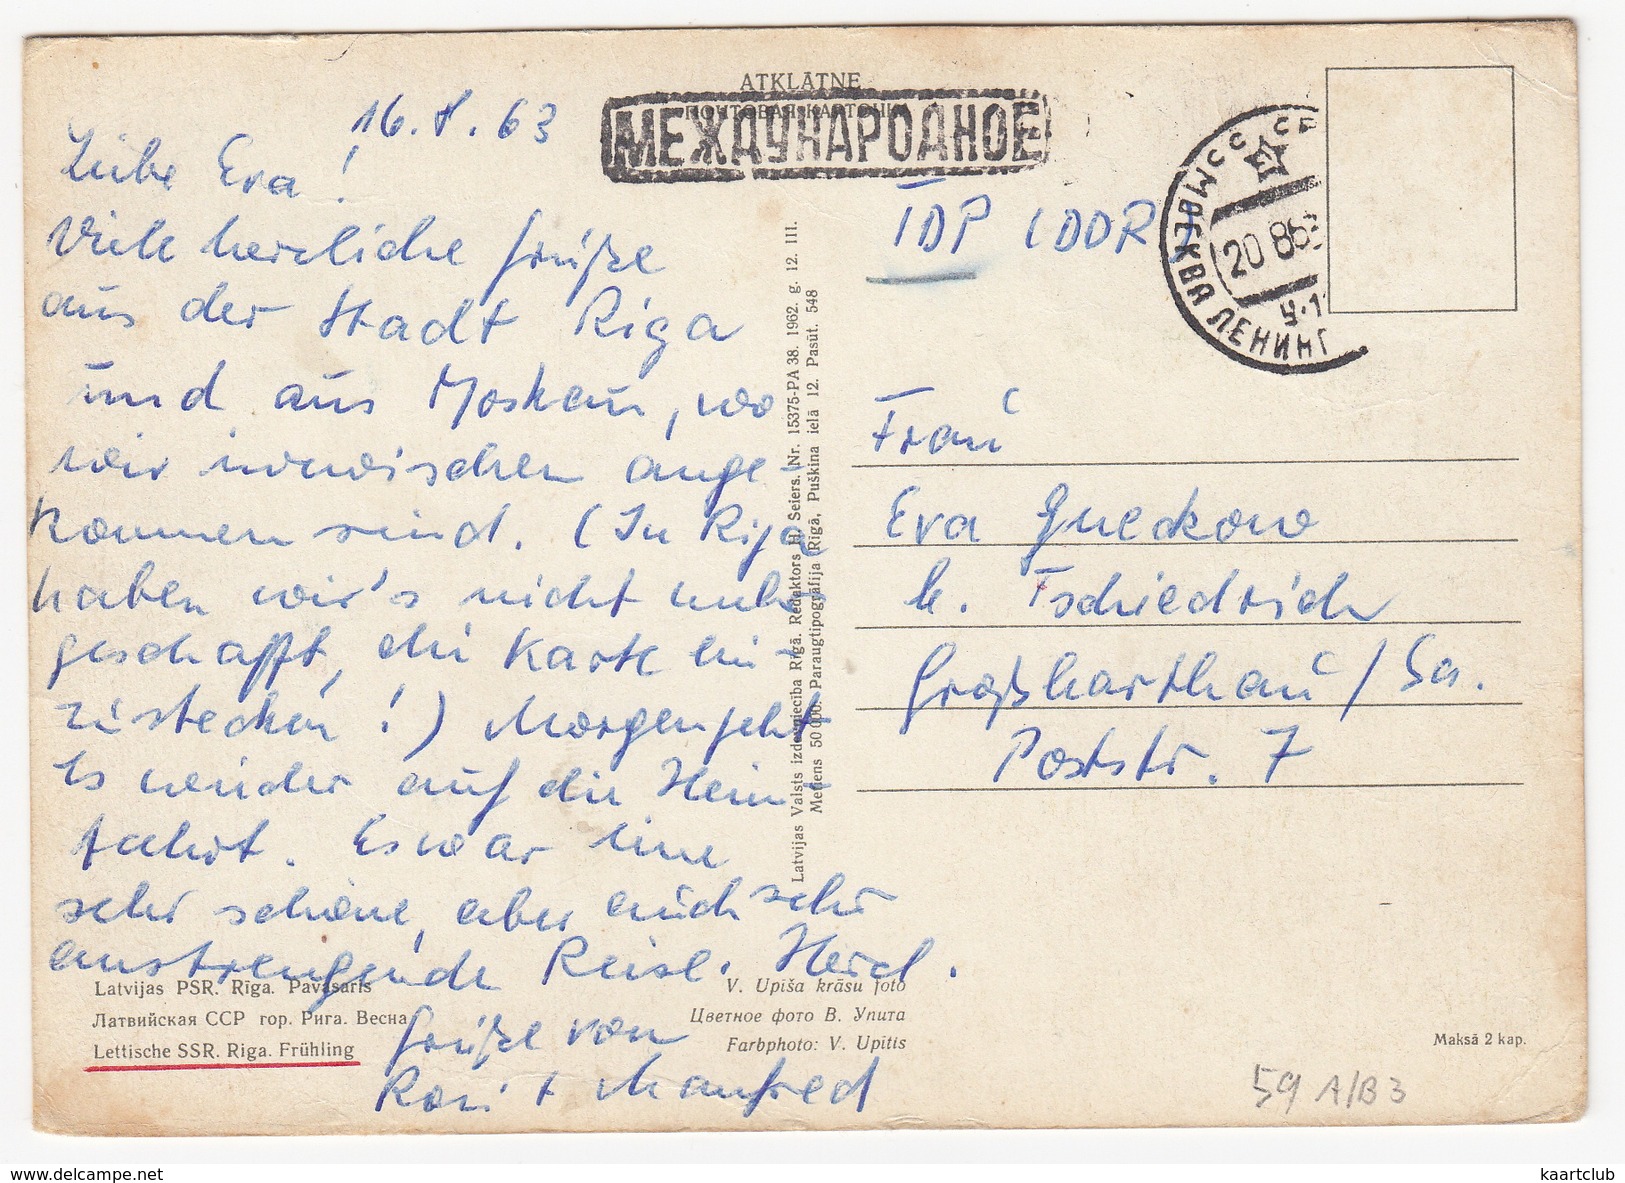 ATKLĀTNE
ПОЧТОВАЯ КАРТОЧКА
МЕЖДУНАРОДНОЕ
16.8.63
Liebe Eva!
Viele herzliche Grüße
aus der Stadt Riga
und aus Moskau, wo
wir inzwischen ange-
kommen sind. (In Riga
haben wir's nicht mehr
geschafft, die Karte ein-
zustecken!) Morgen geht
es wieder auf die Heim-
fahrt. Es war eine
sehr schöne, aber auch sehr
anstrengende Reise. Herzl.
Grüße von
Rosi + Manfred
Latvijas PSR. Rīga. Pavasaris
Латвийская ССР гор. Рига. Весна
Lettische SSR. Riga. Frühling
V. Upiša krāsu foto
Цветное фото В. Упита
Farbphoto: V. Upitis
Latvijas Valsts izdevniecība Rīgā. Redaktors H. Seiers. Nr. 15375-PA 38. 1962. g. 12. III.
Metiens 50 000. Paraugtipogrāfija Rīgā, Puškina ielā 12. Pasūt. 548
ГДР (DDR)
МОСКВА ЛЕНИНГ
20 8 63
Frau
Eva Gneckow
b. Tschiedrich
Großharthau / Sa.
Poststr. 7
Maksā 2 kap.
59 A/B 3
kaartclub